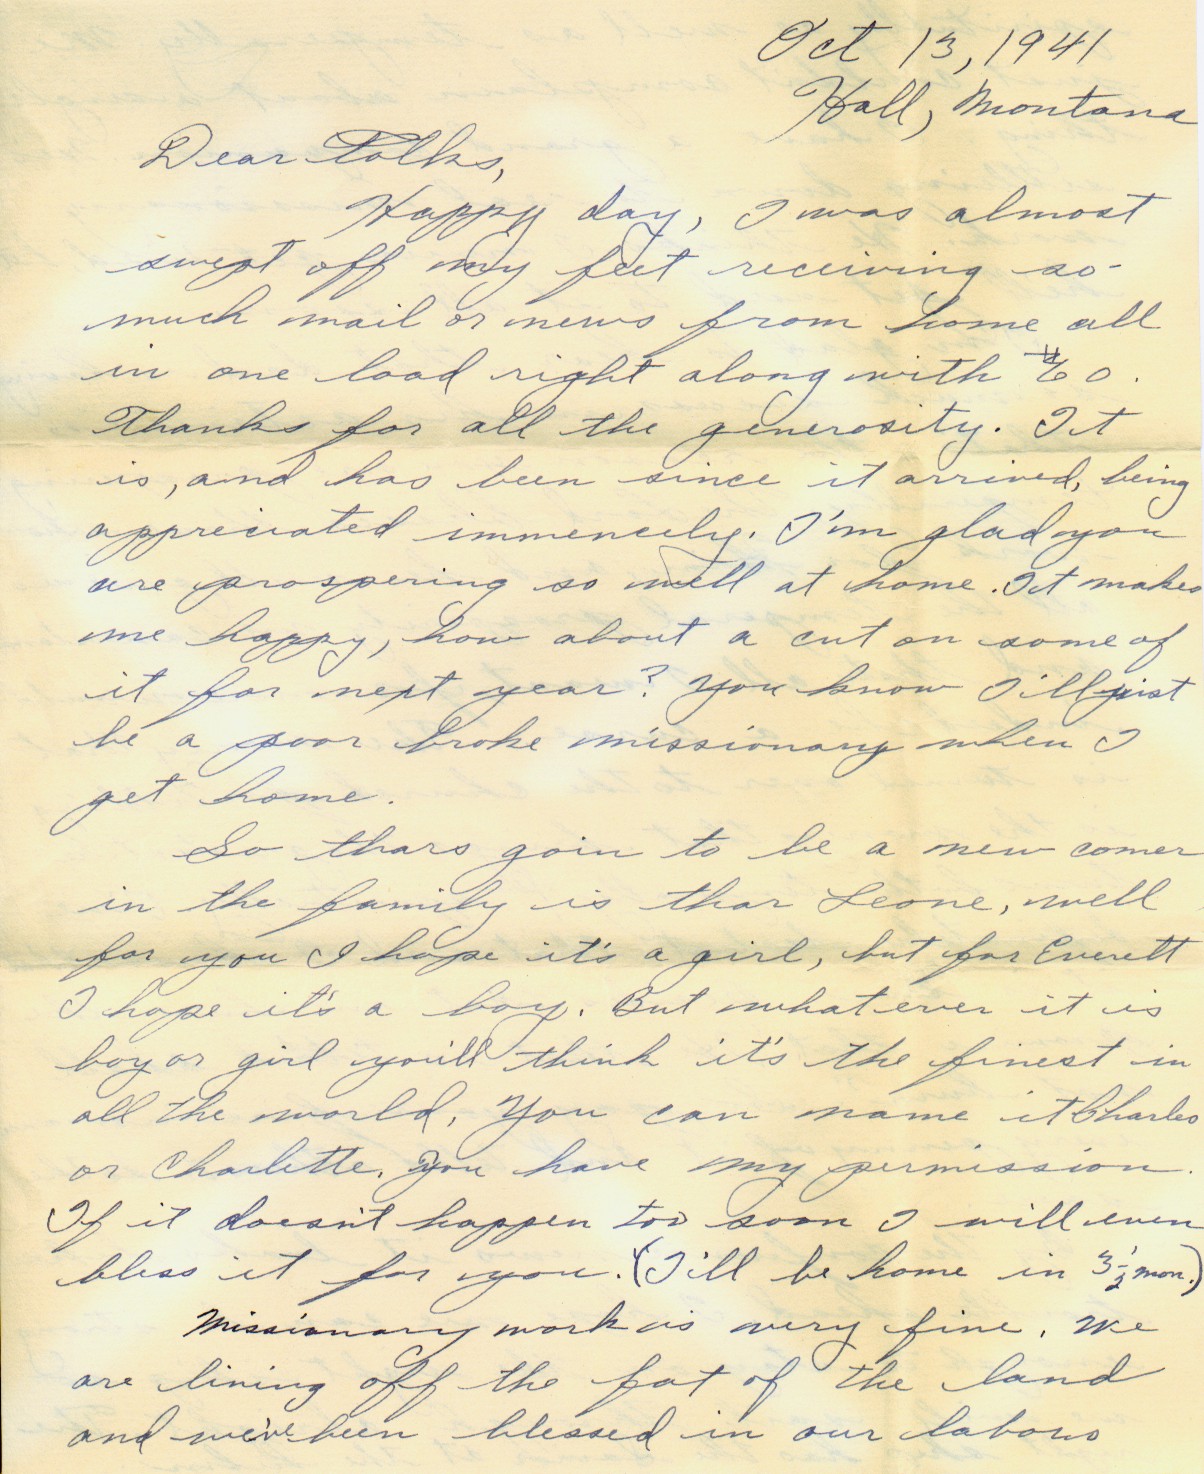 Oct 13, 1941
Hall, Montana
Dear Folks,
Happy day, I was almost
swept off my feet receiving so
much mail or news from home all
in one load right along with $60.
Thanks for all the generosity. It
is, and has been since it arrived, being
appreciated immencely. I'm glad you
are prospering so well at home. It makes
me happy, how about a cut on some of
it for next year? You know I'll jist
be a poor broke missionary when I
get home.
So thars goin to be a new comer
in the family is thar Leone, well
for you I hope it's a girl, but for Everett
I hope it's a boy. But whatever it is
boy or girl you'll think it's the finest in
all the world. You can name it Charles
or Charlette. You have my permission.
If it doesn't happen too soon I will even
bless it for you. (I'll be home in 3½ mon.)
Missionary work is very fine. We
are living off the fat of the land
and we've been blessed in our labors